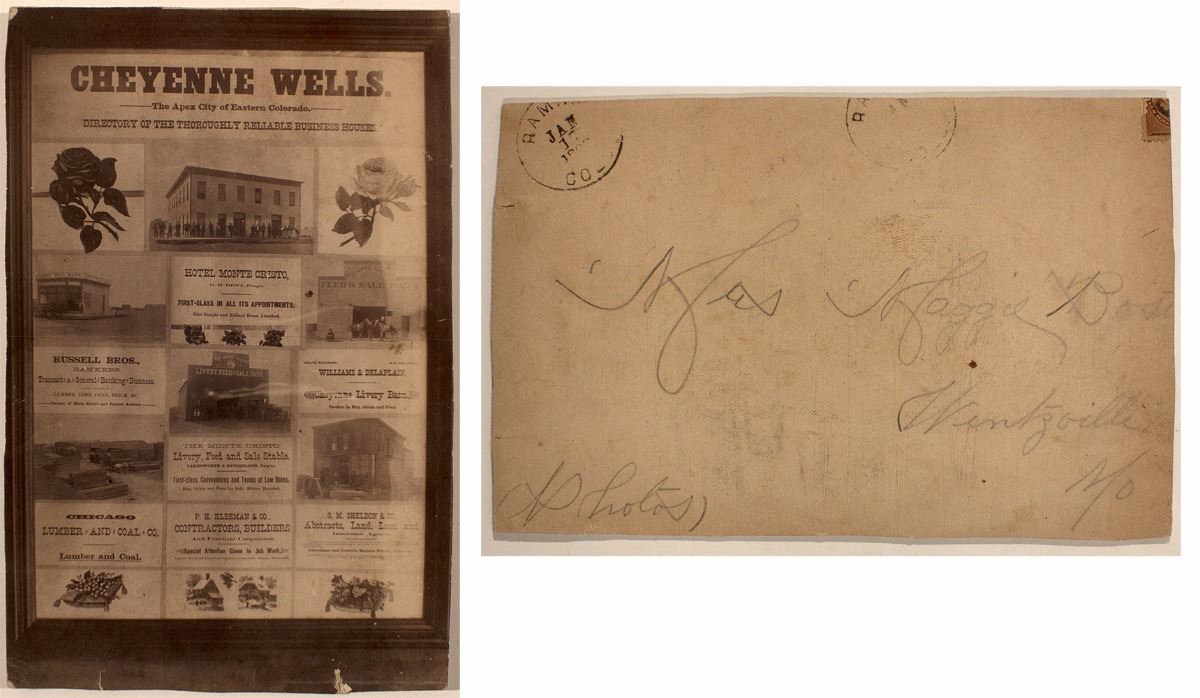 CHEYENNE WELLS.
The Apex City of Eastern Colorado.
DIRECTORY OF THE THOROUGHLY RELIABLE BUSINESS HOUSES.
HOTEL MONTE CRISTO,
FIRST-CLASS IN ALL ITS APPOINTMENTS.
Fine Sample and Billiard Rooms Attached.
FEED & SALE
RUSSELL BROS.,
BANKERS.
Transact a General Banking Business.
LUMBER, LIME, COAL, BRICK, &C.
Corner of Main Street and
LIVERY, FEED & SALE BARN
WILLIAMS & DELAPLAIN.
Cheyenne Livery Barn.
Dealers in Hay, Grain and Feed.
THE MONTE CRISTO
Livery, Feed and Sale Stable.
First-class Conveyances and Teams at Low Rates.
Hay, Grain and Feed for Sale. Horses Boarded.
CHICAGO
LUMBER AND COAL CO.
Lumber and Coal.
P. H. KLEEMAN & CO.,
CONTRACTORS, BUILDERS
And Practical Carpenters.
Special Attention Given to Job Work.
G. M. SHELDON & CO.
Abstracts, Land, Loan and
Insurance Agency
RAM
JAN
CO.
RA
Mrs Maggie Bost
Wentzville
Mo
(Photos)